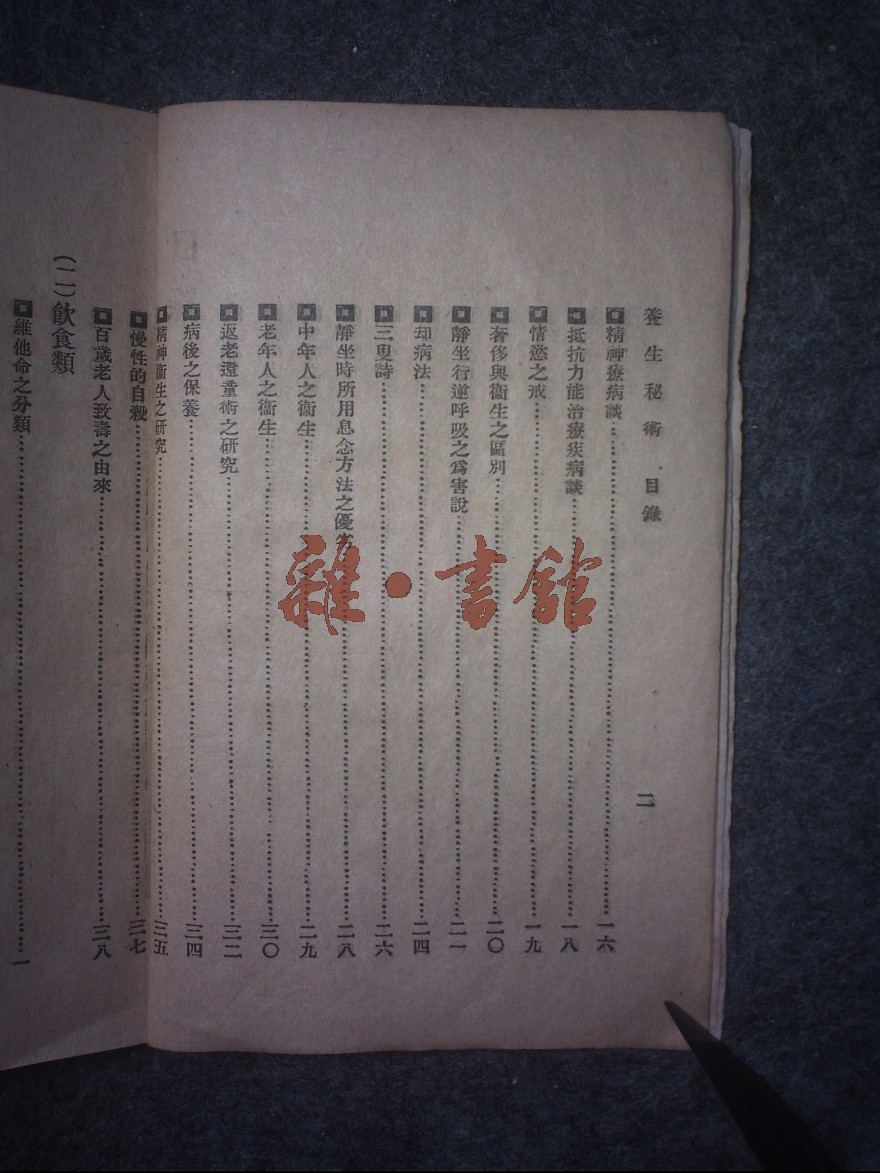 養生秘術 目錄 二
精神療病談 一六
抵抗力能治療疾病談 一八
情慾之戒 一九
奢侈與衞生之區別 二〇
靜坐行逆呼吸之爲害說 二一
却病法 二四
三叟詩 二六
靜坐時所用息念方法之優劣 二八
中年人之衞生 二九
老年人之衞生 三〇
返老還童術之研究 三二
病後之保養 三四
精神衞生之研究 三五
慢性的自殺 三七
百歲老人致壽之由來 三八
(二)飲食類
維他命之分類 一
雜·書館